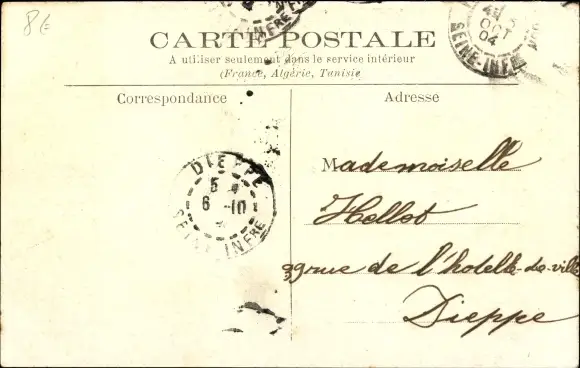 8€
CARTE POSTALE
A utiliser seulement dans le service intérieur
(France, Algérie, Tunisie
Correspondance
Adresse
OCT
04
SEINE-INF
DIEPPE
5
6 -10
SEINE INFRE
Mademoiselle
Hellot
39 rue de l'hotelle-de-ville
Dieppe